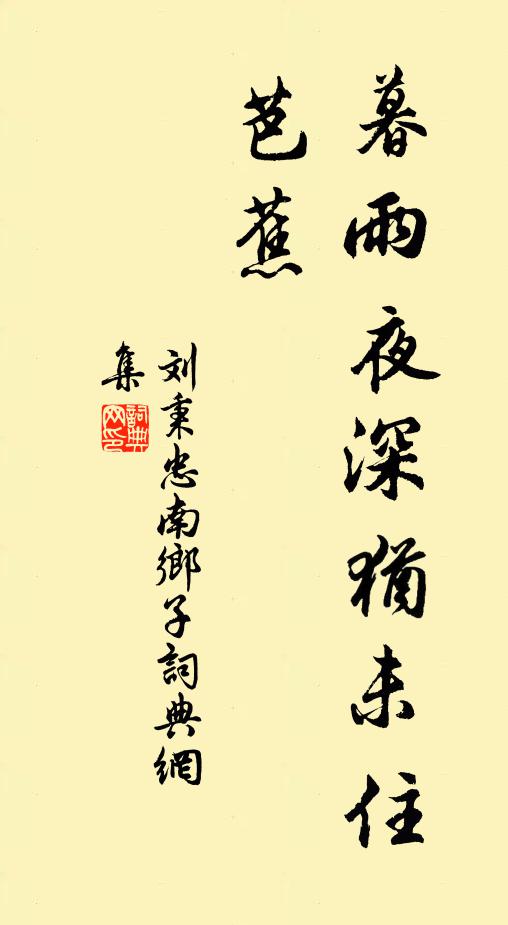 暮雨夜深猶未住
芭蕉
刘秉忠南鄉子詞典網
集
詞典
网印